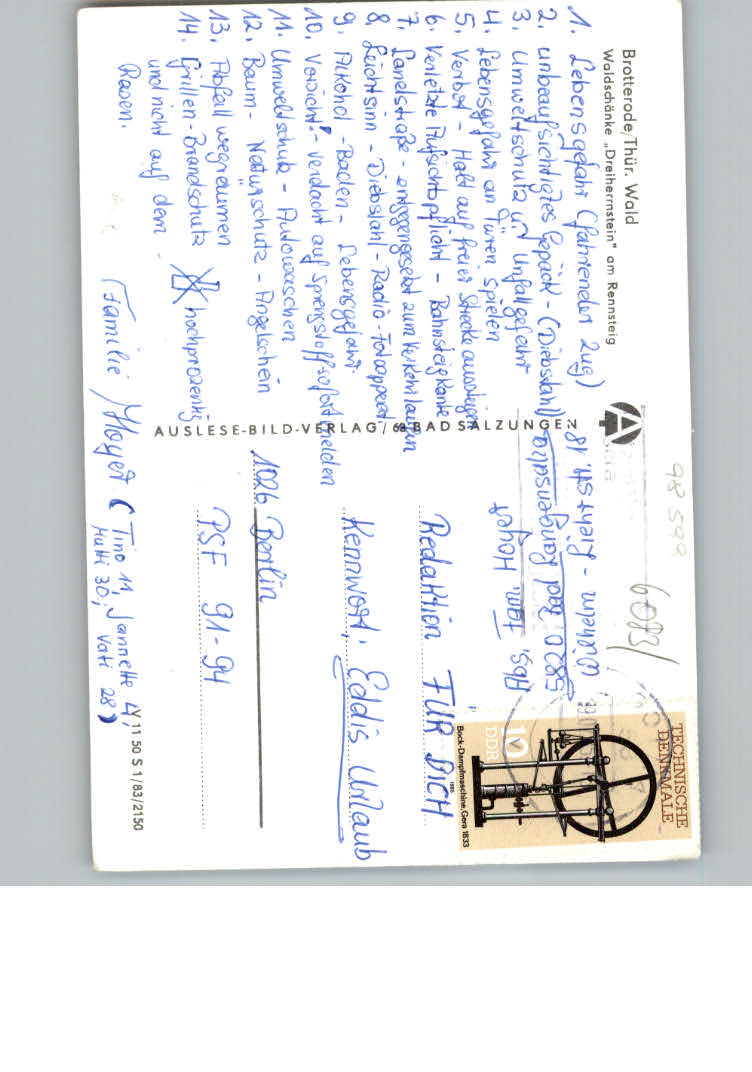 Brotterode/Thür. Wald
Waldschänke „Dreiherrnstein" am Rennsteig
1. Lebensgefahr (fahrender Zug)
2. unbeaufsichtigtes Gepäck - (Diebstahl)
3. Umweltschutz u. Unfallgefahr
4. Lebensgefahr an Türen spielen
5. Verbot - Halt auf freier Strecke aussteigen
6. Verletzte Aufsichtspflicht - Bahnsteigkante
7. Landstraße - entgegengesetzt zum Verkehr laufen
8. Leichtsinn - Diebstahl - Radio - Fotoapparat
9. Alkohol - Baden - Lebensgefahr
10. Vorsicht! - Verdacht auf Sprengstoff sofort melden
11. Umweltschutz - Autowaschen
12. Baum - Naturschutz - Angelschein
13. Abfall wegräumen
14. Grillen - Brandschutz hochprozentig
und nicht auf dem
Rasen.
(Familie Hoyer (Tino 11, Jannette 4,
Mutti 30, Vati 28)
AUSLESE-BILD-VERLAG / 62 BAD SALZUNGEN
98 599
6083/
Wilhelm - Pieck-Str. 18
5820 Bad Langensalza
Abs. Fam. Hoyer
Redaktion FÜR DICH
Kennwort: Eddis Urlaub
1026 Berlin
PSF 91-94
TECHNISCHE
DENKMALE
10
DDR
1985
Bock-Dampfmaschine, Gera 1833
V 11 50 S 1/83/2150